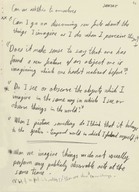 Can
• Can I go on discovering new facts about the
things I imagine as I do when I perceive them?
• Does it make sense to say that one has
found a new feature of an object one is
imagining which one hadn't noticed before?
• Do I see or observe the objects which I
imagine in the same way in which I see or
observe things in the world?
• When I picture something do I think that it belongs
to the spatio-temporal world in which I find myself?
• When we imagine things must we usually
perform any publicly observable acts at the
same time?